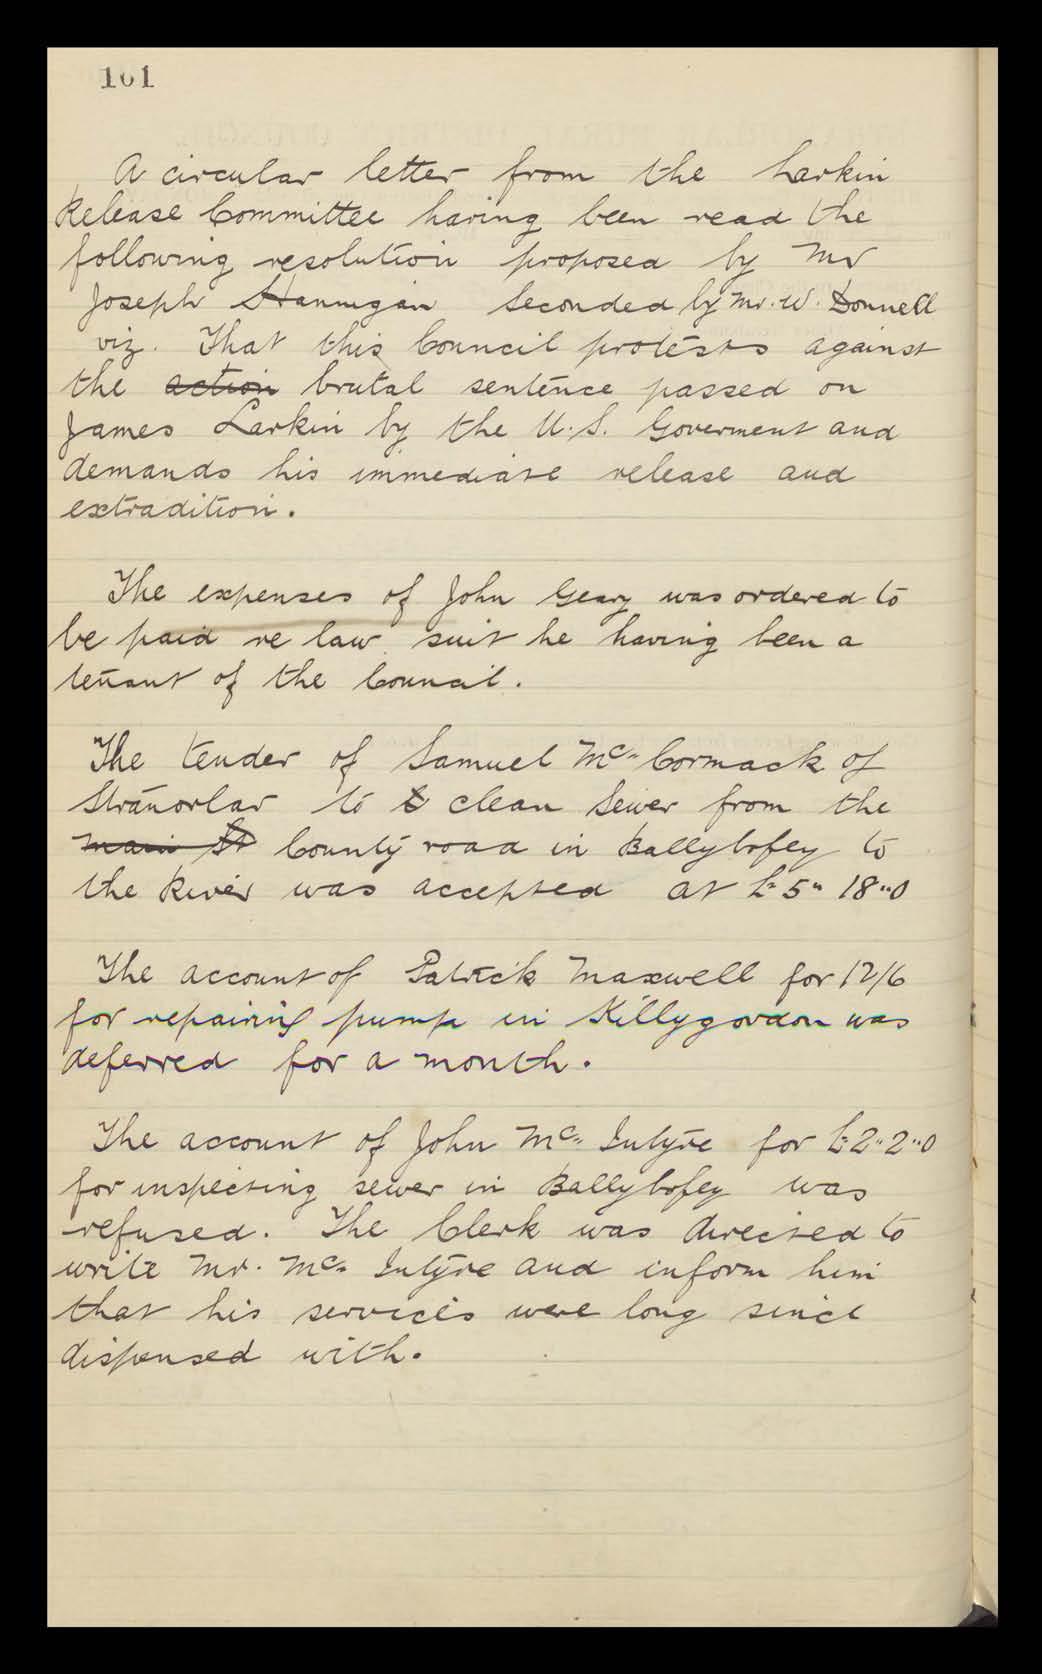 101
A circular letter from the Larkin
Release Committee having been read the
following resolution proposed by Mr
Joseph Hannigan Seconded by Mr. W. Donnell
viz. That this Council protests against
the action brutal sentence passed on
James Larkin by the U.S. Goverment and
demands his immediate release and
extradition.
The expenses of John Geary was ordered to
be paid re law suit he having been a
tenant of the Council.
The tender of Samuel Mc Cormack of
Stranorlar to to clean Sewer from the
Main St County road in Ballybofey to
the River was accepted at £5" 18"0
The account of Patrick Maxwell for 12/6
for repairing pump in Killygordon was
deferred for a month.
The account of John Mc Intyre for £2"2"0
for inspecting sewer in Ballybofey was
refused. The Clerk was directed to
write Mr. Mc Intyre and inform him
that his services were long since
dispensed with.